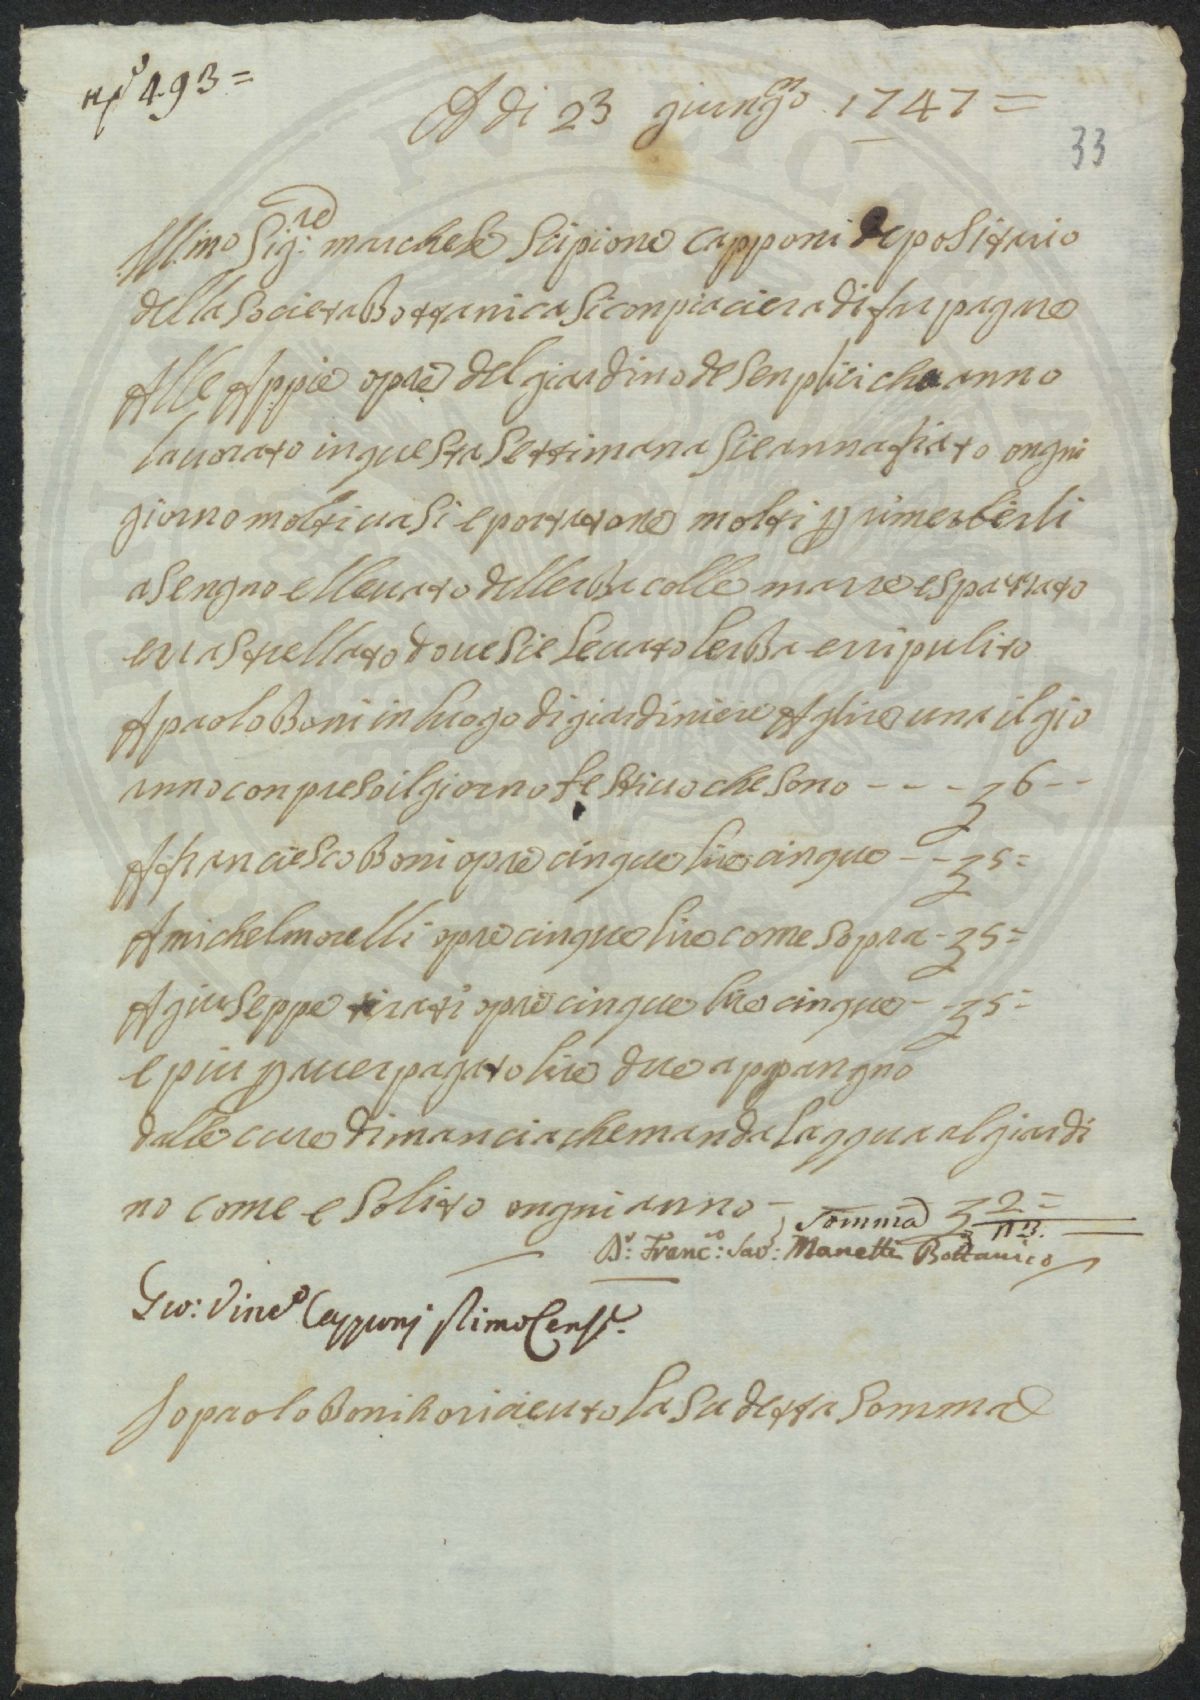 n.º 493=
A di 23 giungno 1747=
33
Illmo Sig:re marchese Scipione Capponi depositario
della Societa Bottanica si conpiaciera di far pagare
Alle Appie opre del giardino de Senplici che anno
lauorato in questa Settimana Sie annafiato ongni
giorno molti uasi e portatone molti p rimetterli
a Sengno e lleuato dellerba colle marre e spazzato
e rastrellato doue Sie Leuato lerba e rripulito
A paolo Boni in luogo di giardiniere A lire una il gio
rnno conpreso il giorno festiuo che sono - - - 6 - -
A franciesco Boni opre cinque lire cinque - - 5=
A michel morelli opre cinque lire come sopra - 5=
A giuseppe tirati opre cinque lire cinque - - 5=
e piu p auer pagato lire due a ppangno
dalle cure di mancia che manda Laqqua al giardi
no come e Solito ongni anno - 2=
Somma 23.
Dr: Franc:o Sav: Manetti Bottanico
Gio: Vinc.o Capponj Primo Cens.e
Io paolo Boni ho riceuto la Su detta Somma